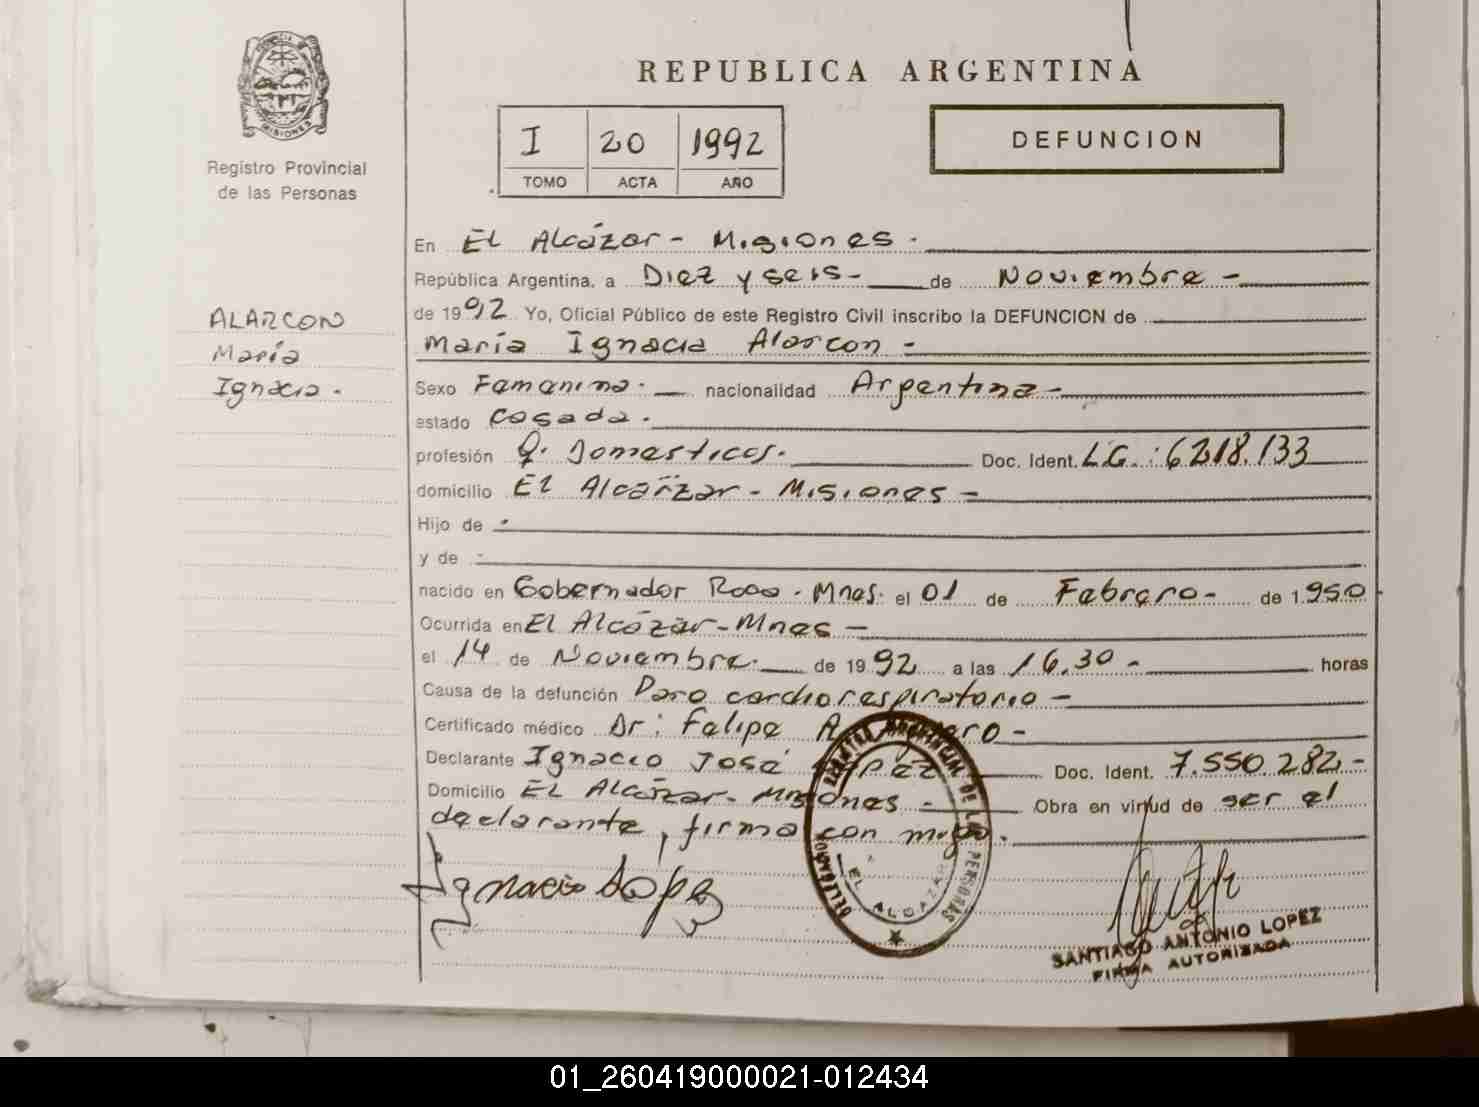 REPUBLICA ARGENTINA
I 20 1992
TOMO ACTA AÑO
DEFUNCION
MISIONES
Registro Provincial
de las Personas
ALARCON
María
Ignacia.
En El Alcázar - Misiones.
República Argentina, a Diez y seis - de Noviembre -
de 1992 Yo, Oficial Público de este Registro Civil inscribo la DEFUNCION de
María Ignacia Alarcon -
Sexo Famanina. nacionalidad Argentina -
estado Casada.
profesión Q. Domesticos. Doc. Ident. L.C.: 6218.133
domicilio El Alcázar - Misiones -
Hijo de -
y de -
nacido en Gobernador Roca. Mnes. el 01 de Febrero - de 1950
Ocurrida en El Alcázar - Mnes -
el 14 de Noviembre. de 1992 a las 16.30 - horas
Causa de la defunción Paro cardiorespiratorio -
Certificado médico Dr: Felipe A.
Declarante Ignacio José López Doc. Ident. 7.550.282 -
Domicilio El Alcázar - Misiones - Obra en virtud de ser el
declarante, firma con migo.
Ignacio López
DELEGACION REGISTRO PROVINCIAL DE LAS PERSONAS
EL ALCAZAR
SANTIAGO ANTONIO LOPEZ
FIRMA AUTORIZADA
01_260419000021-012434